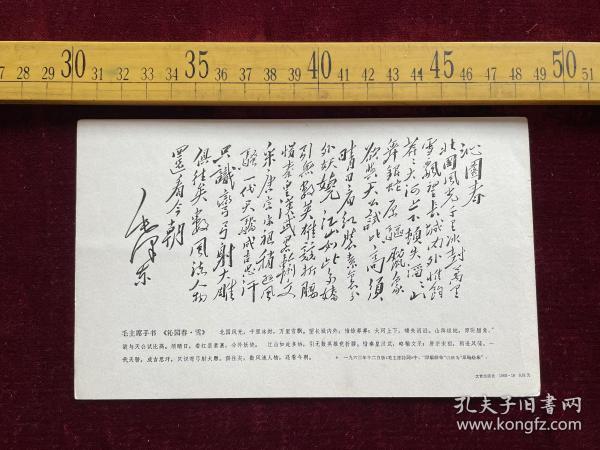 27 28 29 30 31 32 33 34 35 36 37 38 39 40 41 42 43 44 45 46 47 48 49 50 51
沁園春
北國風光千里冰封萬里
雪飄望長城內外惟餘
莽莽大河上下頓失滔滔山
舞銀蛇原驅臘象
欲與天公試比高須
晴日看紅裝素裹分
外妖嬈江山如此多嬌
引無數英雄競折腰
惜秦皇漢武略輸文
采唐宗宋祖稍遜風
騷一代天驕成吉思汗
只識彎弓射大雕
俱往矣數風流人物
還看今朝
毛澤东
毛主席手书 《沁园春·雪》 北国风光，千里冰封，万里雪飘。望长城内外，惟余莽莽；大河上下，顿失滔滔。山舞银蛇，原驱腊象，*
欲与天公试比高。须晴日，看红装素裹，分外妖娆。 江山如此多娇，引无数英雄竞折腰。惜秦皇汉武，略输文采；唐宗宋祖，稍逊风骚。一
代天骄，成吉思汗，只识弯弓射大雕。俱往矣，数风流人物，还看今朝。 * 一九六三年十二月版《毛主席诗词》中，“原驱腊象”已改为“原驰蜡象”。
文物出版社
孔夫子旧书网
www.kongfz.com